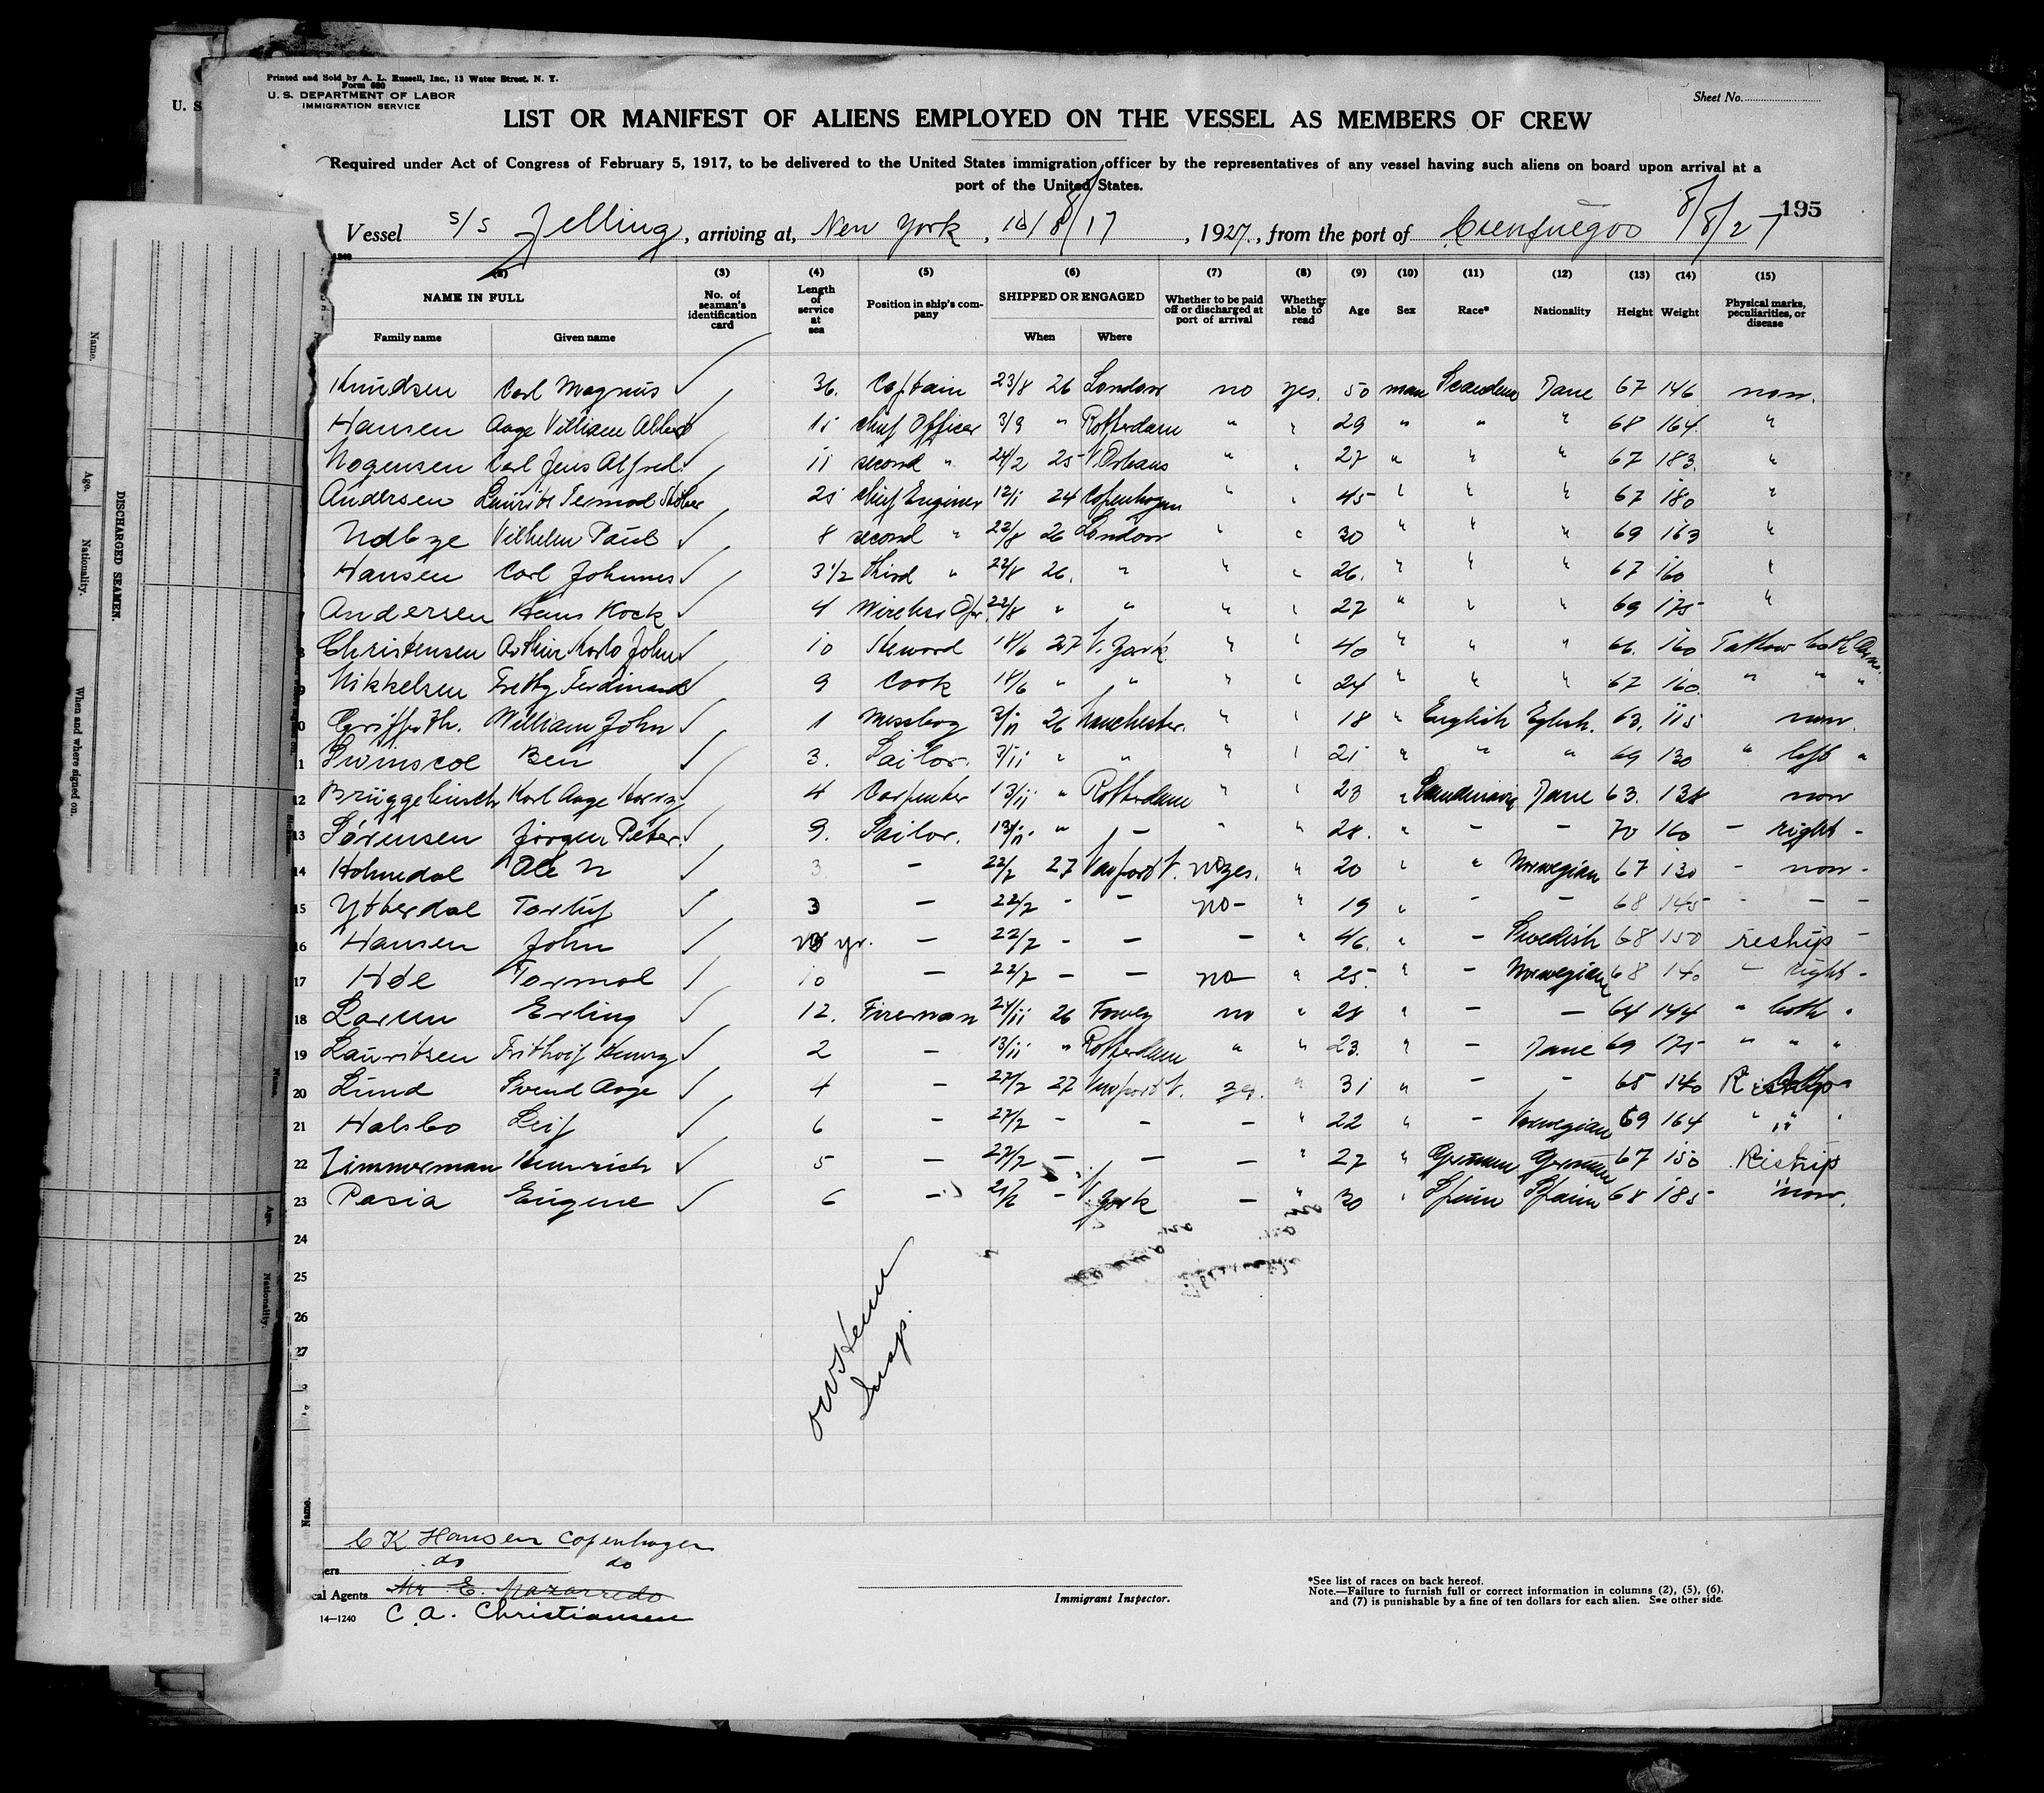 Printed and Sold by A. L. Russell, Inc., 13 Water Street, N. Y.
Form 680
U. S. DEPARTMENT OF LABOR
IMMIGRATION SERVICE
U. S
Sheet No.
LIST OR MANIFEST OF ALIENS EMPLOYED ON THE VESSEL AS MEMBERS OF CREW
Required under Act of Congress of February 5, 1917, to be delivered to the United States immigration officer by the representatives of any vessel having such aliens on board upon arrival at a
port of the United States.
195
Vessel s/s Jelling, arriving at, New York, 1927., from the port of Cienfuegos 8/8/27
(3) (4) (5) (6) (7) (8) (9) (10) (11) (12) (13) (14) (15)
NAME IN FULL No. of seaman's identification card Length of service at sea Position in ship's company SHIPPED OR ENGAGED Whether to be paid off or discharged at port of arrival Whether able to read Age Sex Race* Nationality Height Weight Physical marks, peculiarities, or disease
Family name Given name When Where
Knudsen Carl Magnus ✓ 36. Captain 23/8 26 London no yes. 50 man Dane 67 146 non.
Hansen Aage Villiam ✓ 11 chief Officer 3/9 " Rotterdam " " 29 " " " 68 164 "
Mogensen Carl Jens Alfred ✓ 11 second " 24/2 25 " " 27 " " " 67 183. "
Andersen ✓ 25 chief Engineer 12/1 24 Copenhagen " " 45 " " " 67 180 "
Vilhelm Paul ✓ 8 second " 22/8 26 London " " 30 " " " 69 163 "
Hansen Carl Johannes ✓ 3 1/2 third " 22/8 26. " " " 26. " " " 67 160 "
7 Andersen Hans Kock ✓ 4 Wireless Opr. 22/8 " " " " 27 " " " 69 175 "
8 Christensen Arthur Karlo John ✓ 10 Steward 18/6 27 N. York " " 40 " " " 66. 160 Tattow both Arms.
9 Mikkelsen Ferdinand ✓ 9 Cook 18/6 " " " " 24 " " " 67 160. " " "
10 Griffith. William John ✓ 1 Messboy 3/11 26 Manchester. " " 18 " English Eglish. 63. 115 non.
11 Swinscoe Ben ✓ 3. Sailor. 3/11 " " " " 21 " " " 69 130 " left "
12 Karl Aage ✓ 4 Carpenter 13/11 " Rotterdam " " 23 " Scandinavia Dane 63. 138 non
13 Sørensen Jörgen Peter ✓ 9. Sailor. 13/11. " – " " 28. " – – 70 160 – right –
14 Ole N ✓ 3 – 22/7 27 yes. " 20 " " Norwegian 67 130 – non –
15 Ytterdal ✓ 3 – 22/7 – – no – " 19 " – – 68 145 – – –
16 Hansen John ✓ yr. – 22/7 – – – " 46. " – Swedish 68 150 reship –
17 Tormod ✓ 10 – 22/7 – – no " 25. " – Norwegian 68 140 – right –
18 Larsen Erling ✓ 12. Fireman 24/11 26 Fowey no " 28 " – – 64 144 " both "
19 Lauritsen ✓ 2 – 13/11 " Rotterdam " " 23. " – Dane 69 175 " " "
20 Lund Svend Aage ✓ 4 – 27/7 27 " 31 " – – 65 140
21 Halsbo Leif ✓ 6 – 27/7 – – – " 22 " – Norwegian 69 164 " " "
22 Zimmerman Heinrich ✓ 5 – 27/7 – – – " 27 " German German 67 150 Reship
23 Pasia Eugene ✓ 6 – 21/6 – N. York – " 30 " Spain Spain 68 185 non.
24
25
26
27
Insp.
C K Hansen Copenhagen
ers do do
cal Agents Mr E. Mazarredo
14—1240 C. A. Christiansen
Immigrant Inspector.
*See list of races on back hereof.
Note.—Failure to furnish full or correct information in columns (2), (5), (6),
and (7) is punishable by a fine of ten dollars for each alien. See other side.
DISCHARGED SEAMEN.
Name.
Age.
Nationality.
When and where signed on.
Name.
Age.
Nationality.
Name.